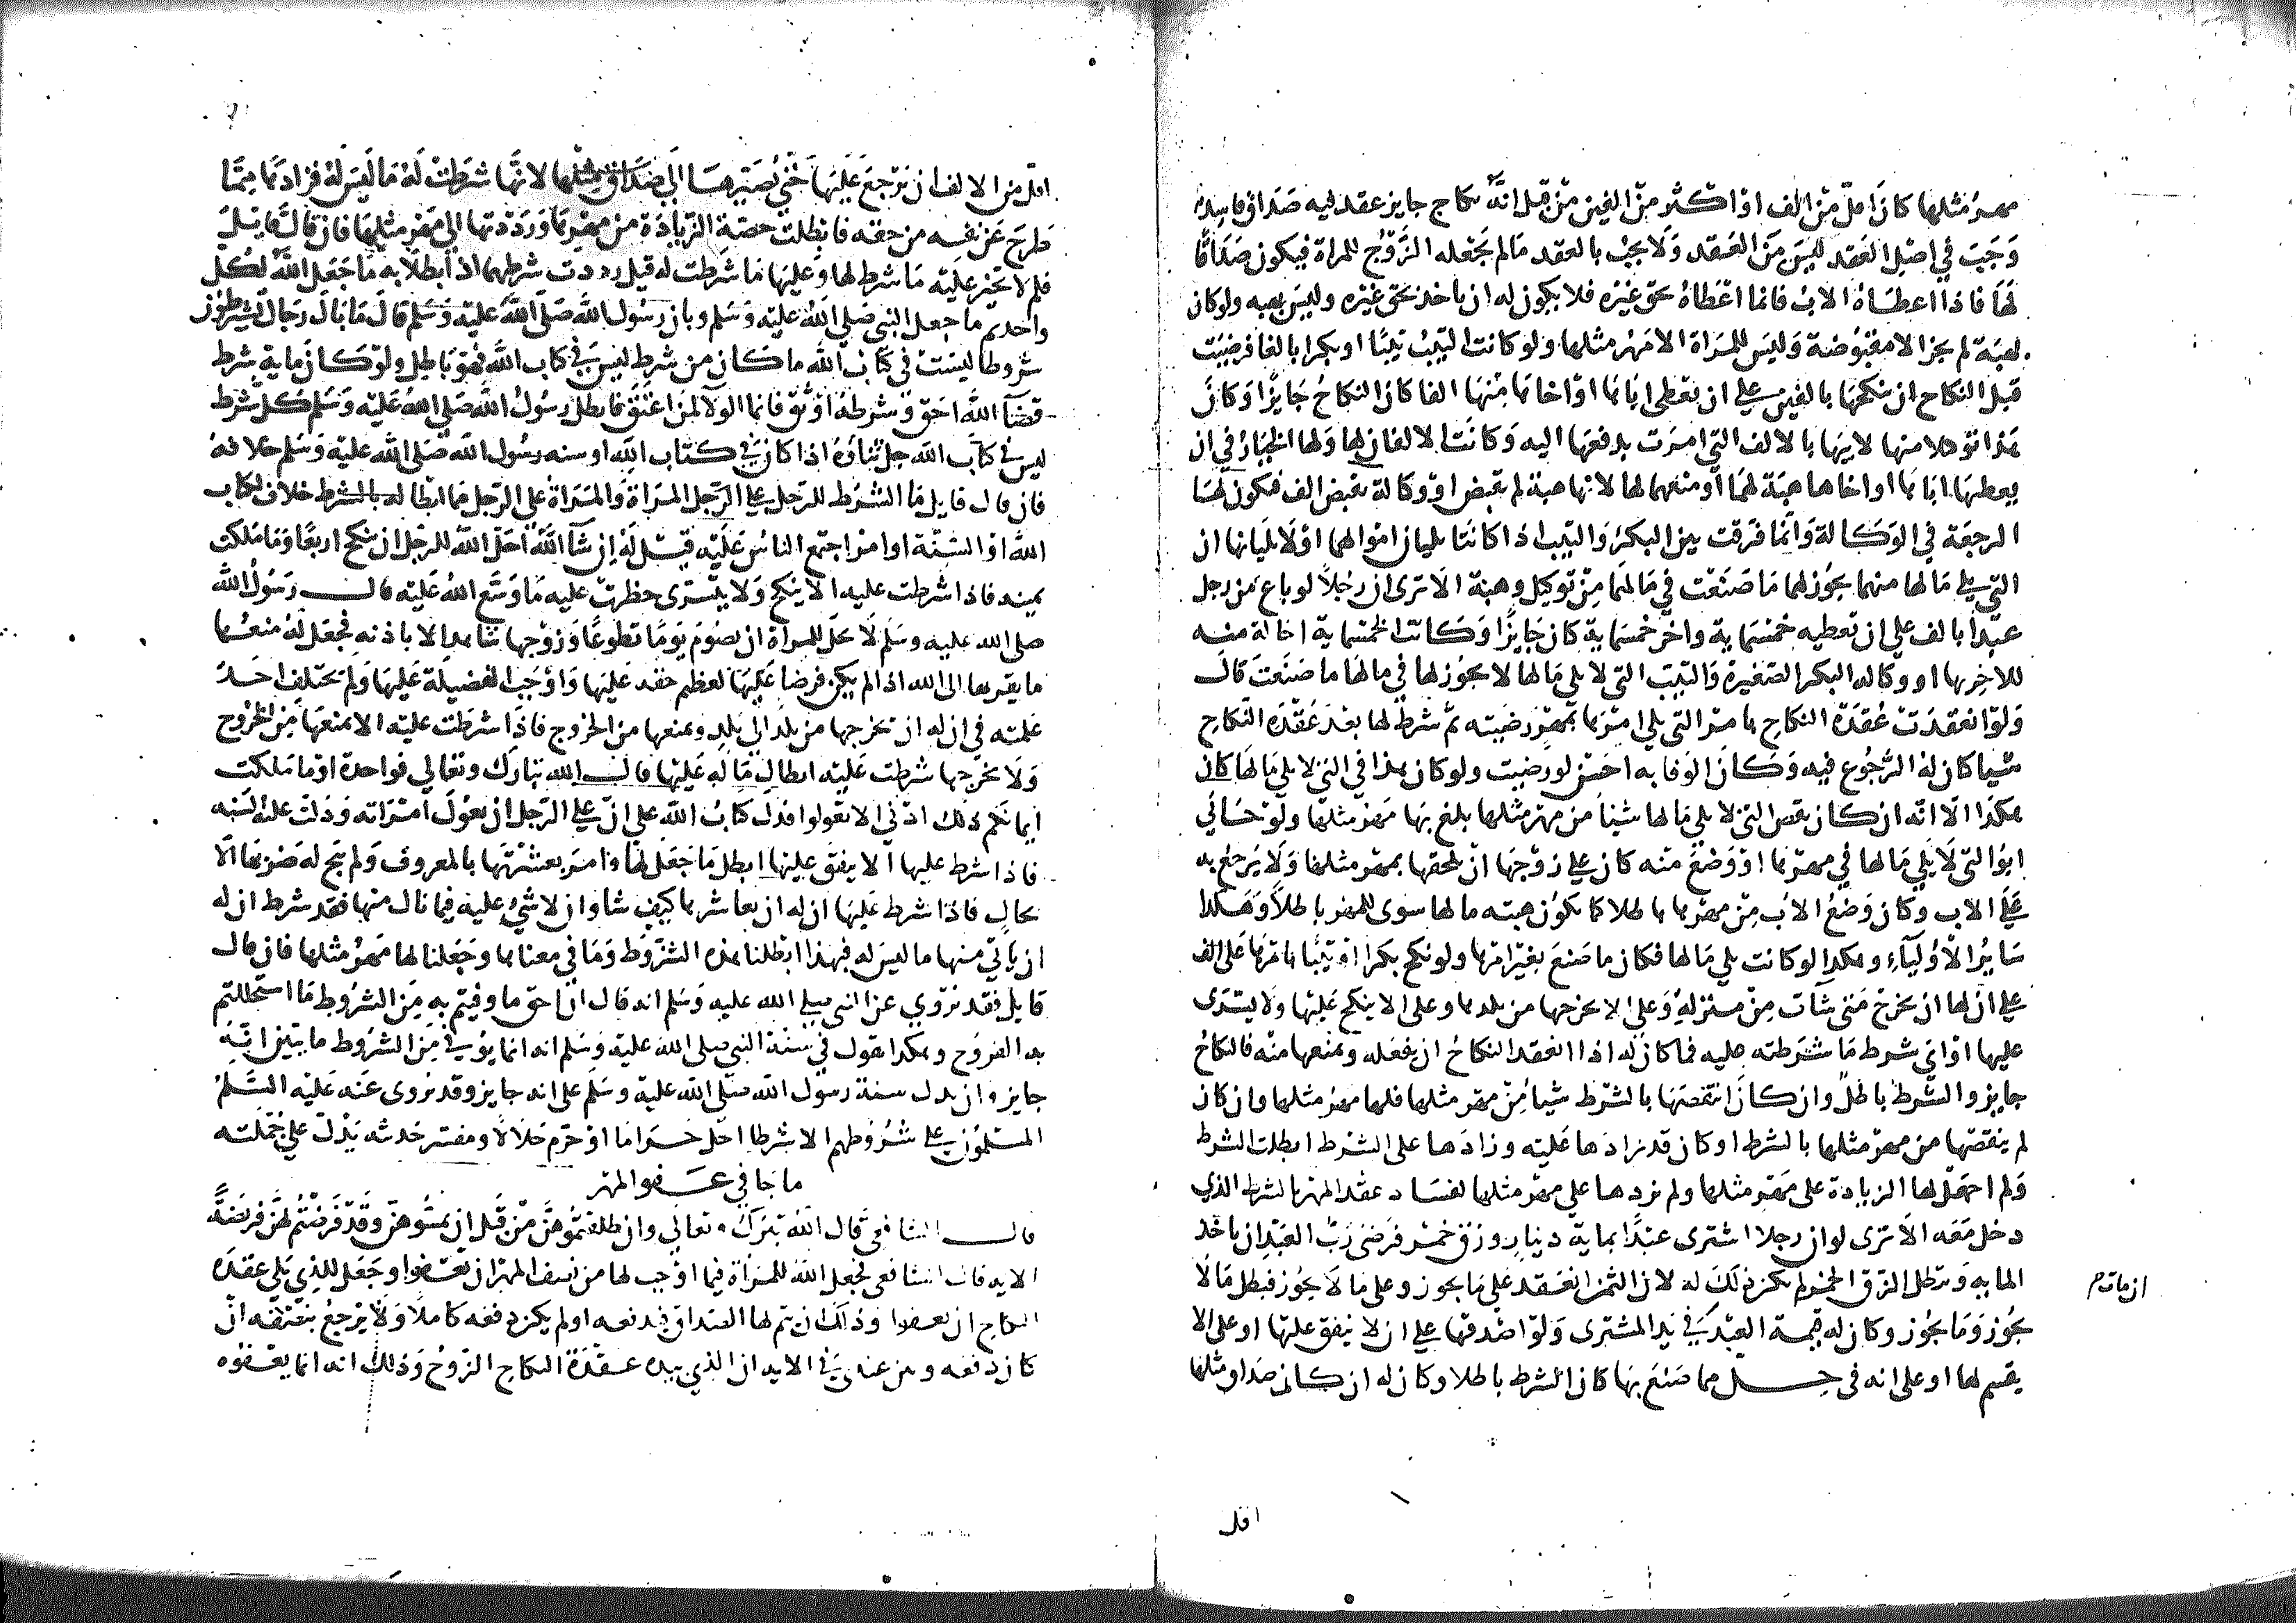 مهر مثلها كان اقل من الف او اكثر من الفين من قبل انه نكاح جايز عقد فيه صداق فاسد
وجب في اصل العقد ليس من العقد ولا يجب بالعقد مالم يجعله الزوج للمراة فيكون صداقا
لها فاذا اعطاه الاب فانما اعطاه حق غيره فلا يكون له ان ياخذ بحق غيره وليس بهبه ولو كان
لهبة لم يجز الا مقبوضة وليس للمراة الا مهر مثلها ولو كانت البنت ثيبا او بكرا بالغا فرضيت
قبل النكاح ان ينكحها بالفين على ان يعطى اباها او اخاها منها الفا كان النكاح جايزا وكان
هذا توكيلا منها لابيها بالالف التي امرت بدفعها اليه وكانت الالفان لها ولها الخيار في ان
يعطيها اباها او اخاها هبة لهما او منعهما لها لانها هبة لم تقبض او وكالة بقبض الف فيكون لها
الرجعة في الوكالة وانما فرقت بين البكر والثيب اذا كانتا يليان اموالهما او لا يليانها ان
التي تلي مالها منهما يجوز لها ما صنعت في مالها من توكيل وهبة الا ترى ان رجلا لو باع من رجل
عبدا بالف على ان تعطيه خمسماية واخر خمسماية كان جايزا وكانت الخمسماية احالة منه
للاخر بها او وكاله البكر الصغيرة والثيب التي لا تلي مالها لا يجوز لها في مالها ما صنعت قال
ولو انعقدت عقدة النكاح بامر التي تلي امرها بمهر رضيته ثم شرط لها بعد عقدة النكاح
شيا كان له الرجوع فيه وكان الوفا به احسن لو رضيت ولو كان هذا في التي لا تلي مالها كان
هكذا الا انه ان كان نقص التي لا تلي مالها شيئا من مهر مثلها بلغ بها مهر مثلها ولو حابى
ابو التي لا تلي مالها في مهرها او وضع منه كان على زوجها ان يلحقها بمهر مثلها ولا يرجع به
على الاب وكان وضع الاب من مهرها باطلا كما يكون هبته مالها سوى المهر باطلا وهكذا
ساير الاولياء وهكذا لو كانت تلي مالها فكان ما صنع بغير امرها ولو نكح بكرا او ثيبا بامرها على الف
على ان لها ان تخرج متى شات من منزله وعلى الا يخرجها من بلدها وعلى الا ينكح عليها ولا يتسرى
عليها او اي شرط ما شرطته عليه فما كان له اذا انعقد النكاح ان يفعله ويمنعها منه فالنكاح
جايز والشرط باطل وان كان انتقصها بالشرط شيا من مهر مثلها فلها مهر مثلها وان كان
لم ينقصها من مهر مثلها بالشرط او كان قد زادها عليه وزادها على الشرط ابطلت الشرط
ولم اجعل لها الزيادة على مهر مثلها ولم نزدها على مهر مثلها لفساد عقد المهر بالشرط الذي
دخل معه الا ترى لو ان رجلا اشترى عبدا بماية دينار وزق خمر فرضى رب العبد ان ياخذ
المايه ويبطل الزق الخمر لم يكن ذلك له لان الثمن انعقد على ما يجوز وعلى ما لا يجوز فبطل مالا
يجوز وما يجوز وكان له قيمة العبد في يد المشترى ولو اصدقها على ان لا ينفق عليها او على الا
يقسم لها او على انه في حل مما صنع بها كان الشرط باطلا وكان له ان كان صداق مثلها
اقل
اقل من الالف ان يرجع عليها حتى يصيرها الى صداق مثلها لانها شرطت له ما ليس له فزادها مما
طرح عن نفسه من حقه فابطلت حصة الزيادة من مهرها ورددتها الى مهر مثلها فان قال قايل
فلم لا تجيز عليه ما شرط لها وعليها ما شرطت له قيل رددت شرطهما اذ ابطلا به ما جعل الله لكل
واحد ثم ما جعل النبي صلى الله عليه وسلم وبان رسول الله صلى الله عليه وسلم قال ما بال رجال يشترطون
شروطا ليست في كتاب الله ما كان من شرط ليس في كتاب الله فهو باطل ولو كان ماية شرط
قضآ الله احق وشرطه اوثق فانما الولا لمن اعتق فابطل رسول الله صلى الله عليه وسلم كل شرط
ليس في كتاب الله جل ثناؤه اذا كان في كتاب الله او سنه رسول الله صلى الله عليه وسلم خلافه
فان قال قايل ما الشرط للرجل على الرجل المراة والمراة على الرجل مما ابطاله بالشرط خلاف لكتاب
الله او السنة او امر اجتمع الناس عليه قيل له ان شآ الله احل الله للرجل ان ينكح اربعا وما ملكت
يمينه فاذا شرطت عليه الا ينكح ولا يتسرى حظرت عليه ما وسع الله عليه قال رسول الله
صلى الله عليه وسلم لا يحل للمراة ان تصوم يوما تطوعا وزوجها شاهد الا باذنه فجعل له منعها
ما يقربها الى الله اذا لم يكن فرضا عليها لعظم حقه عليها واوجب الفضيلة عليها ولم يختلف احد
علمته في ان له ان يخرجها من بلد الى بلد ويمنعها من الخروج فاذا شرطت عليه الا يمنعها من الخروج
ولا يخرجها شرطت عليه ابطال ما له عليها قال الله تبارك وتعالي فواحدة او ما ملكت
ايمانكم ذلك ادنى الا تعولوا فدل كتاب الله على ان على الرجل ان يعول امراته ودلت عليه السنه
فاذا شرط عليها الا ينفق عليها ابطل ما جعل لها وامر بعشرتها بالمعروف ولم يبح له ضربها الا
بحال فاذا شرط عليها ان له ان يعاشرها كيف شا وان لا شيء عليه فيما نال منها فقد شرط ان له
ان ياتي منها ما ليس له فبهذا ابطلنا هذه الشروط وما في معناها وجعلنا لها مهر مثلها فان قال
قايل فقد نروي عن النبي صلى الله عليه وسلم انه قال ان احق ما وفيتم به من الشروط ما استحللتم
به الفروج وهكذا نقول في سنة النبي صلى الله عليه وسلم انه انما يوفى من الشروط ما تبين انه
جايز وان تدل سنة رسول الله صلى الله عليه وسلم على انه جايز وقد نروى عنه عليه السلم
المسلمون على شروطهم الا شرطا احل حراما او حرم حلالا ومفسر حديثه يدل على جملته
ما جا في عفو المهر
قال الشافعي قال الله تبرك وتعالى وان طلقتموهن من قبل ان تمسوهن وقد فرضتم لهن فريضة
الايه قال الشافعي فجعل الله للمراة فيما اوجب لها من نصف المهر ان تعفوا وجعل للذي يلي عقدة
النكاح ان يعفوا وذلك ان يتم لها الصداق فيدفعه او لم يكن دفعه كاملا ولا يرجع بنصفه ان
كان دفعه وبين عندي في الايه ان الذي بيده عقدة النكاح الزوج وذلك انه انما يعفوه